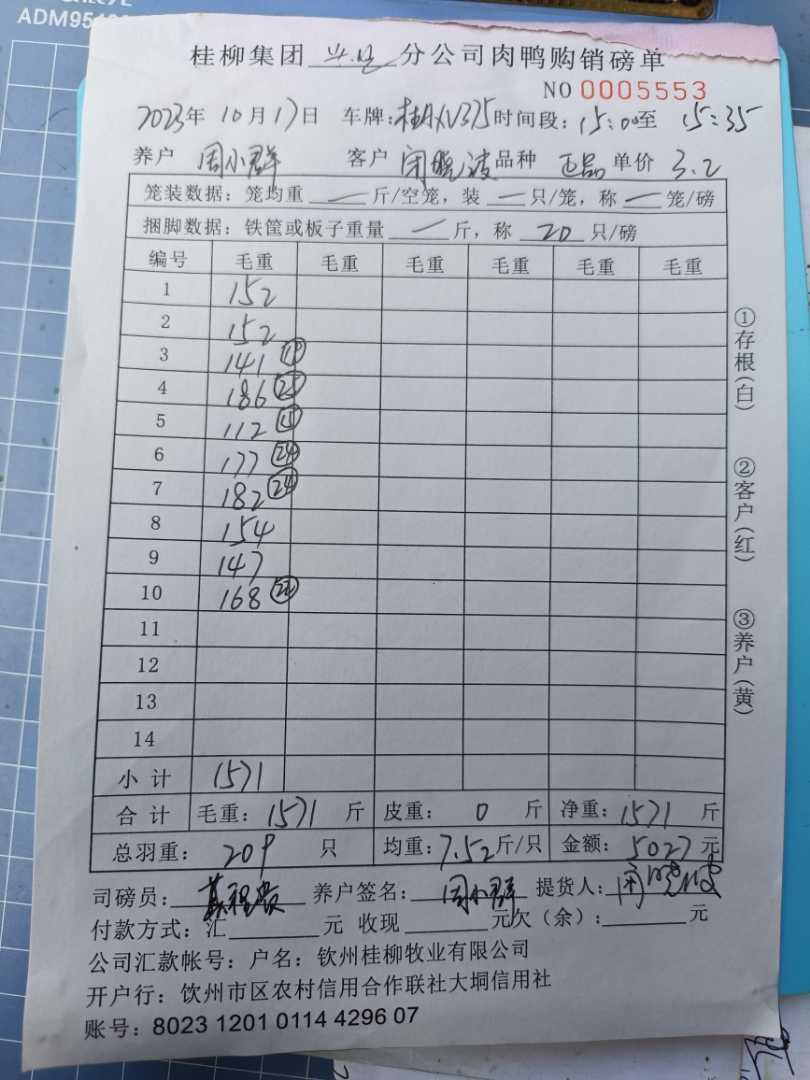 ADM95
桂柳集团 分公司肉鸭购销磅单
NO 0005553
2023年 10月17日 车牌: 时间段: 15:00至 15:35
养户 周小群 客户 闭晓波 品种 正品 单价 3.2
笼装数据: 笼均重 一 斤/空笼, 装 一 只/笼, 称 一 笼/磅
捆脚数据: 铁筐或板子重量 一 斤, 称 20 只/磅
编号 毛重 毛重 毛重 毛重 毛重 毛重
1 152
2 152
3 141
4 186 25
5 112
6 177 24
7 182 24
8 154
9 147
10 168
11
12
13
14
小 计 1571
合 计 毛重: 1571 斤 皮重: 0 斤 净重: 1571 斤
总羽重: 209 只 均重: 7.52斤/只 金额: 5027元
司磅员: 养户签名: 周小群 提货人: 闭晓波
付款方式: 汇 元 收现 元欠(余): 元
公司汇款帐号: 户名: 钦州桂柳牧业有限公司
开户行: 钦州市区农村信用合作联社大垌信用社
账号: 8023 1201 0114 4296 07
①存根(白)
②客户(红)
③养户(黄)